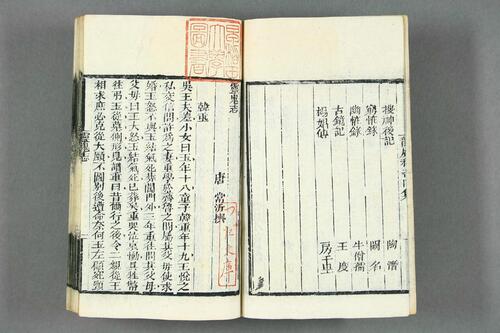 搜神後記 陶潛
窮怪錄 闕名
幽怪錄 牛僧孺
古鏡記 王度
楊娼傳 房千里
靈鬼志
唐 常沂撰
韓重
吳王夫差小女曰玉年十八童子韓重年十九玉悅之
私交信問許為之妻重學於齊魯之間屬其父母使求
婚王怒不與玉結氣死葬閶門外三年重往問其父母
父母曰王大怒玉結氣死已葬矣重哭泣哀慟具牲幣
往弔玉從墓側形見謂重曰昔爾行之後令二親從王
相求庶必克從大願不圖別後遭命奈何玉左顧宛頸
靈鬼志